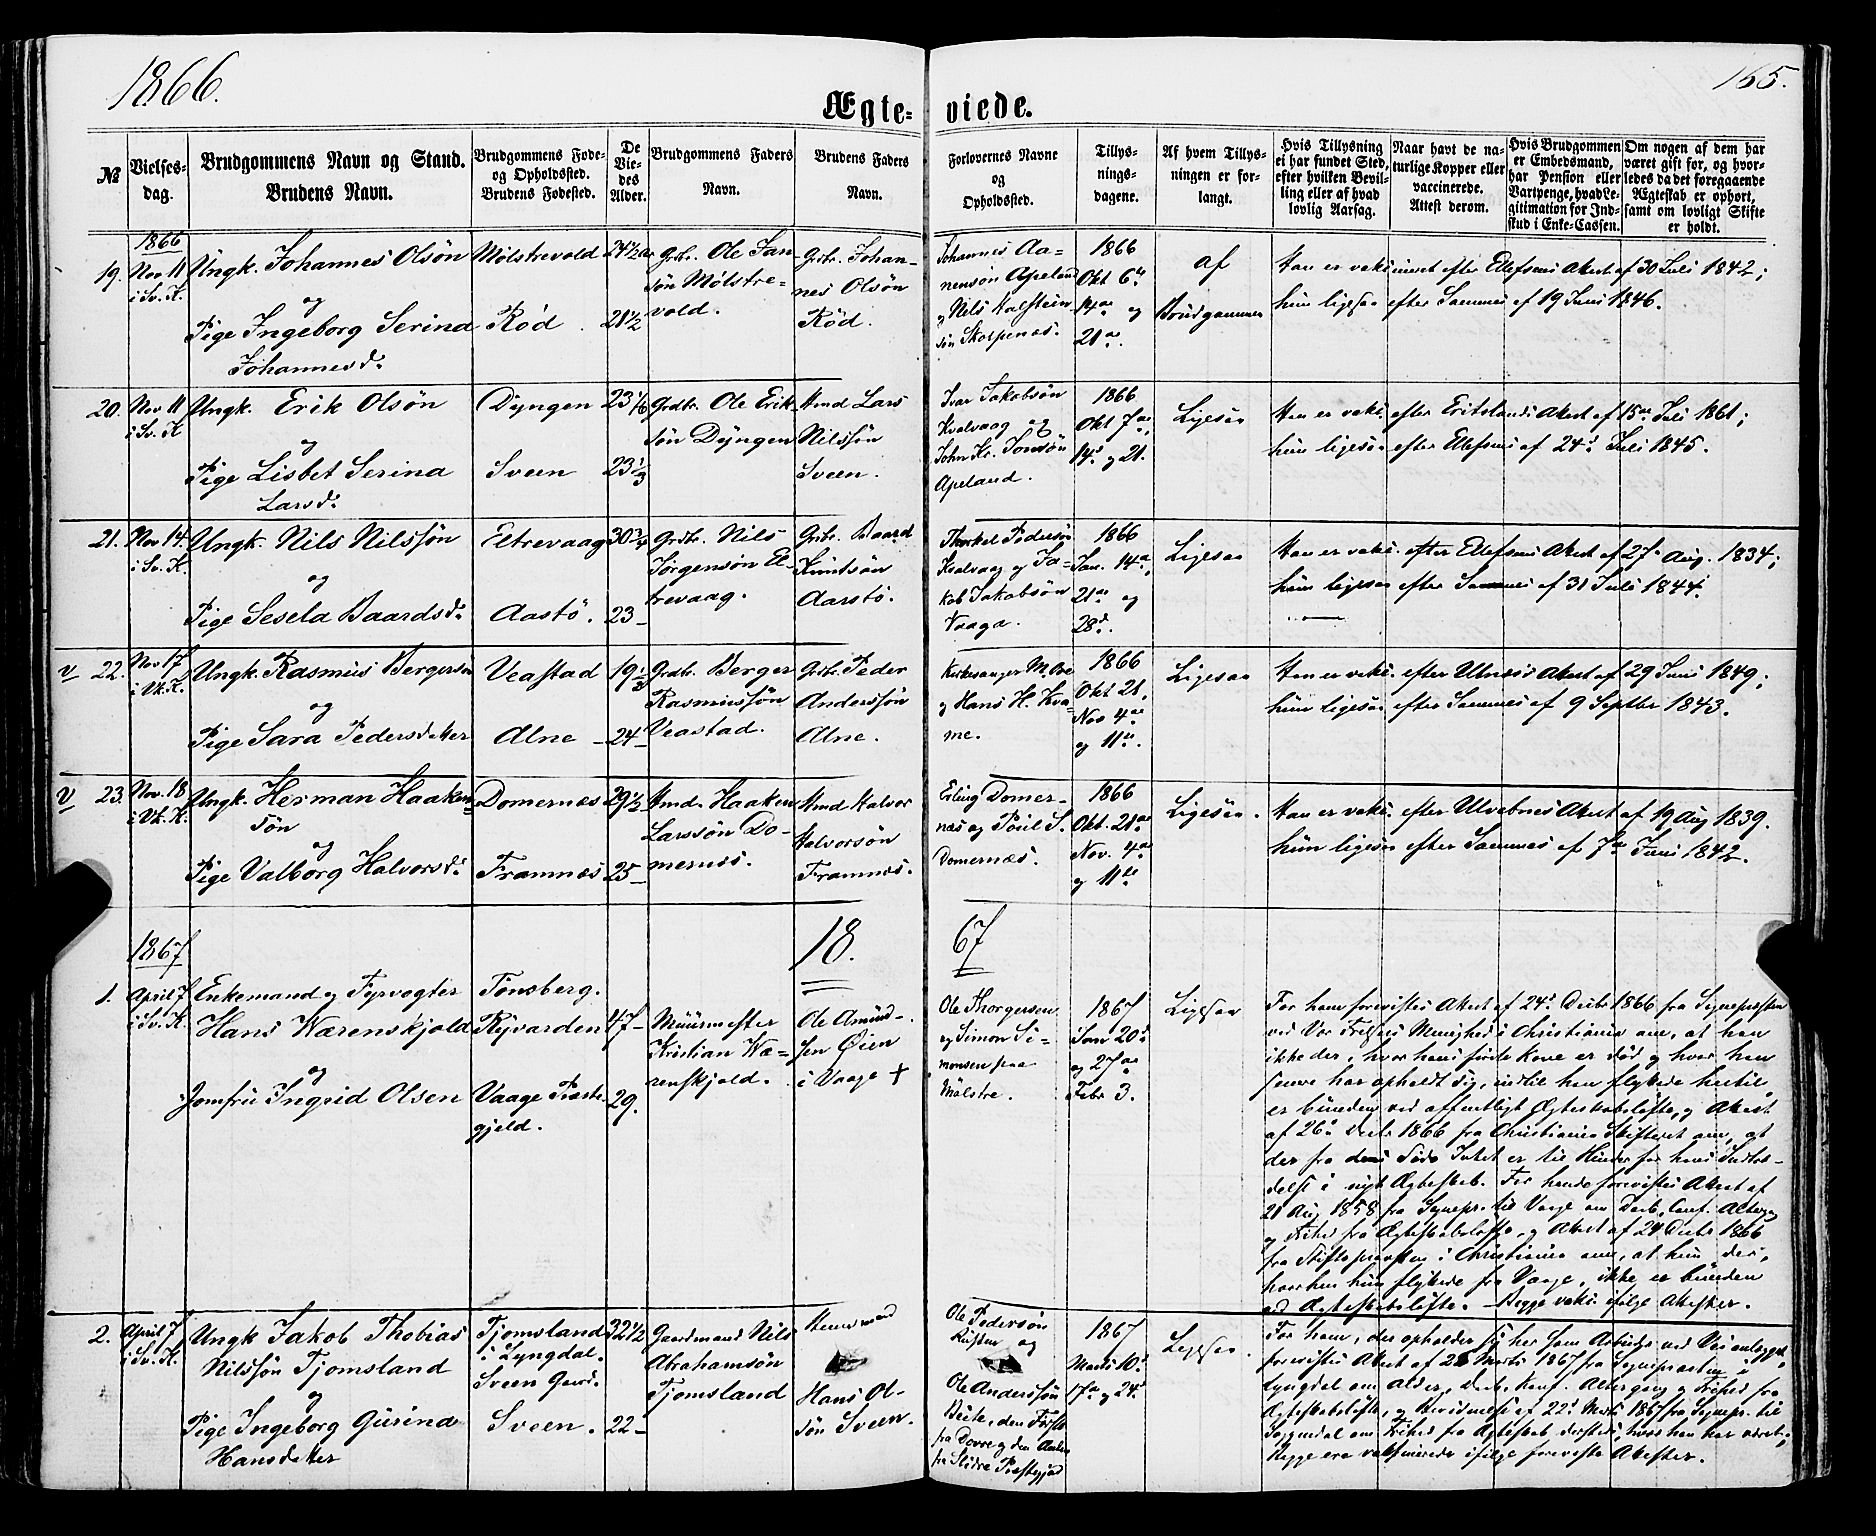 1866.
165.
Ægte-
viede.
№
Vielses-
dag.
Brudgommens Navn og Stand.
Brudens Navn.
Brudgommens Føde-
og Opholdssted.
Brudens Fødested.
De
Vie-
des
Alder.
Brudgommens Faders
Navn.
Brudens Faders
Navn.
Forlovernes Navne
og
Opholdssted.
Tillys-
nings-
dagene.
Af hvem Tillys-
ningen er for-
langt.
Hvis Tillysning
ei har fundet Sted,
efter hvilken Bevil-
ling eller af hvad
lovlig Aarsag.
Naar havt de na-
turlige Kopper eller
vaccinerede.
Attest derom.
Hvis Brudgommen
er Embedsmand,
har Pension eller
Vartpenge, hvad Le-
gitimation for Ind-
skud i Enke-Cassen.
Om nogen af dem har
været gift før, og hvor-
ledes da det foregaaende
Ægteskab er ophørt,
samt om lovligt Skifte
er holdt.
1866
19.
Nov 11
i Sv. K.
Ungk. Johannes Olsön
og
Pige Ingeborg Serina
Johannesd.
Mølstrevold
Röd.
24 1/2
21 1/2
Grdbr. Ole Jan-
sön Mølstre-
vold.
Grdbr. Johan-
nes Olsön
Röd.
Johannes Aa-
nensön Apeland
og Nils Halstein
sön Skolpenæs.
1866
Okt 6
14 og
21.
af
Brudgommen
Han er vaksineret efter Ellefsens Attest af 30 Juli 1842;
hun ligesaa efter Sammes af 19 Juni 1846.
20.
Nov 11
i Sv. K
Ungk. Erik Olsön
og
Pige Lisbet Serina
Larsd.
Dyngen
Sveen
23 1/6
23 1/3
Grdbr. Ole Erik
sön Dyngen
Hmd Lars
Nilssön
Sveen.
Ivar Jakobsön
Kvalvaag og
John Kr. Jonsön
Apeland.
1866
Okt 7
14 og 21.
Ligesaa
Han er vaks. efter Eritslands Attest af 15 Juli 1861;
hun ligesaa efter Ellefsens af 24 Juli 1845.
21.
Nov 14.
i Sv. K.
Ungk. Nils Nilssön
og
Pige Sesela Baardsd.
Eltrevaag
Aastö.
30 3/4
23
Grdbr. Nils
Jörgensön El-
trevaag.
Grdbr. Baard
Knutsön
Aarstö.
Thorkel Pedersön
Kvalvaag og Ja-
kob Jakobsön
Vaaga.
1866
Jan. 14,
21 og
28.
Ligesaa
Han er vaks. efter Ellefsens Attest af 27 Aug. 1834;
hun ligesaa efter Sammes af 31 Juli 1844.
V
22.
Nov 17
i Vk. K.
Ungk. Rasmus Bergersön
og
Pige Sara Pedersdatter
Veastad
Alne
19 1/3
24
Grdbr. Berger
Rasmussön
Veastad.
Grdbr. Peder
Anderssön
Alne.
Kirkesanger M. Ove
og Hans H. Kva-
me.
1866
Okt 21.
Nov 4
og 11.
Ligesaa
Han er vaks. efter Ulnæs's Attest af 29 Juni 1849;
hun ligesaa efter Sammes af 9 Septbr 1843.
V
23.
Nov. 18
i Vk. K.
Ungk. Herman Haaken
sön
og
Pige Valborg Halvorsd.
Domernæs
Framnæs
29 1/2
25
Hmd. Haaken
Larssön Do-
mernæs.
Hmd Halvor
Halvorsön
Framnæs.
Erling Domer-
næs og Poul S.
Domernæs.
1866
Okt. 21
Nov. 4
og 11
Ligesaa.
Han er vaks. efter Ulvebnes Attest af 19 Aug 1839.
hun ligesaa efter Sammes af 7 Juni 1842.
18.
67
1867
1.
April 7
i Sv. K.
Enkemand og Fyrvogter
Hans Wærenskjold
og
Jomfru Ingrid Olsen
Tönsberg.
Ryvarden
Vaage Præste-
gjeld.
47
29.
Muurmester
Kristian Wæ-
renskjold.
Ole Amund-
sen Öien
i Vaage +
Ole Thorgersen
og Simon Si-
monsen paa
Mölstre.
1867
Jan 20
og 27
Febr 3.
Ligesaa
For ham forevistes Attest af 24 Decbr 1866 fra Sognepresten
ved Vor Frelsers Menighed i Christiania om, at han
ikke der, hvor hans förste Kone er död og hvor han
senere har opholdt sig, indtil han flyttede hertil,
er bunden ved offentligt Ægteskabslöfte, og Attest
af 26 Decbr 1866 fra Christiania Skifteret om, at
der fra dens Side Intet er til Hinder for hans Indtræ-
delse i nyt Ægteskab. For hende forevistes Attest af
21 Aug 1858 fra Sognepr. til Vaage om Daab, Conf. Alterg.
og Frihed fra Ægteskabslöfte, og Attest af 24 Decbr 1866
fra Stiftsprovsten i Christiania om, at hun der,
hvorhen hun flyttede fra Vaage, ikke er bunden
ved Ægteskabslöfte. Begge vaks. ifölge Attester.
2.
April 7
i Sv. K.
Ungk Jakob Thobias
Nilssön Tjomsland
og
Pige Ingeborg Gurina
Hansdatter
Tjomsland
i Lyngdal.
Sveen Gaard.
Sveen.
32 1/2
22
Gaardmand Nils
Abrahamsön
Tjomsland
Hans Ol-
sön Sveen.
Ole Pedersön
og
Ole Anderssön
Beite, den Förste
fra Dovre og den Anden
fra Slidre Præstegjeld
1867
Marts 10.
17 og 24.
Ligesaa.
For ham, der opholder sig her som Arbeider ved Veianlægget,
forevistes Attest af 25 Marts 1867 fra Sognepræsten i
Lyngdal om Alder, Daab, Konf. Altergang og Frihed fra
Ægteskabslöfte, og Bevidnelse af 22 Marts 1867 fra Sognepr. til
Soggendal om Frihed fra Ægteskab dersteds, hvor han har været.
Begge ere vaksinerede ifölge foreviste Attester.